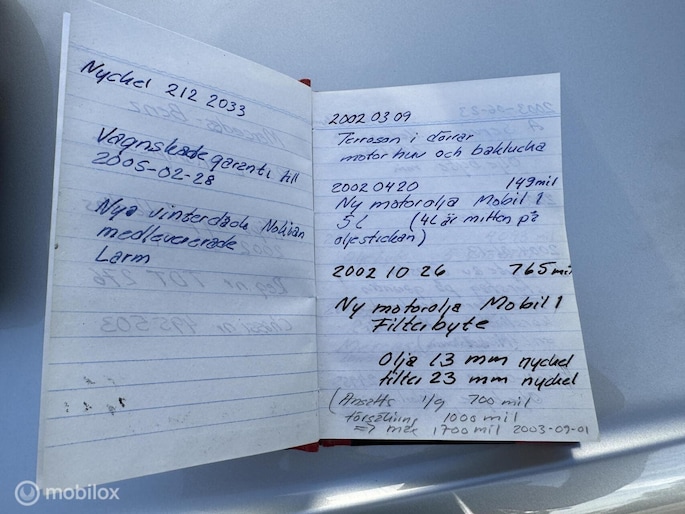 Nyckel 212 2033
Vagnskadegaranti till
2005-02-28
Nya vinterdäck Nokian
medlevererade
Larm
2002 03 09
Teroson i dörrar
motorhuv och baklucka
2002 04 20 149 mil
Ny motorolja Mobil 1
5 L (4L är mitten på
oljestickan)
2002 10 26 765 mil
Ny motorolja Mobil 1
Filterbyte
Olja 13 mm nyckel
filter 23 mm nyckel
(Ansats 1/9 700 mil
försäkring 1000 mil
=> max 1700 mil 2003-09-01
Reg nr TDT 276
Chassi nr 195503
mobilox